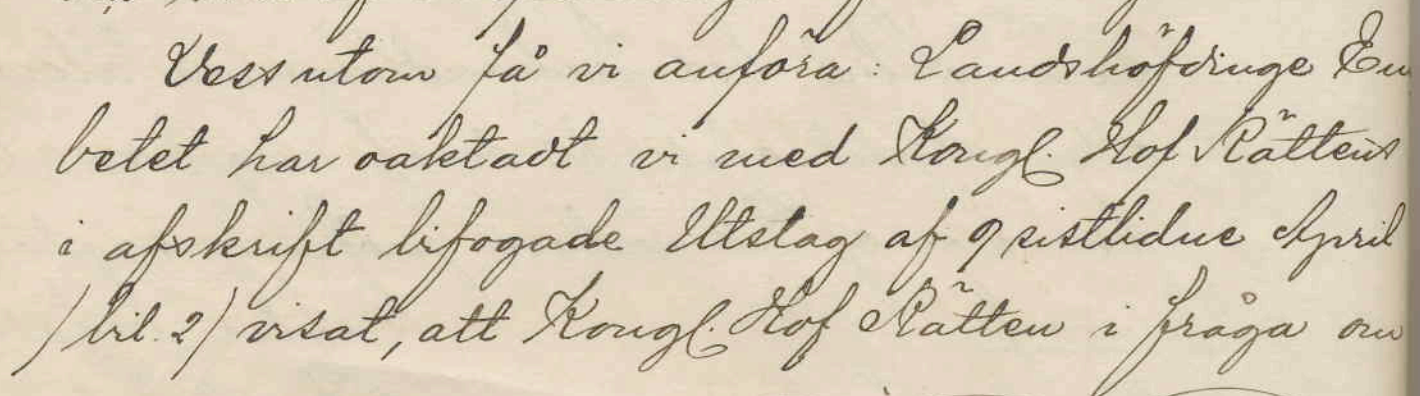 Dessutom få vi anföra: Landshöfdinge Em
betet har oaktadt vi med Kongl. Hof Rättens
i afskrift bifogade Utslag af 9 sistlidne April
/bil. 2/ visat, att Kongl. Hof Rätten i fråga om